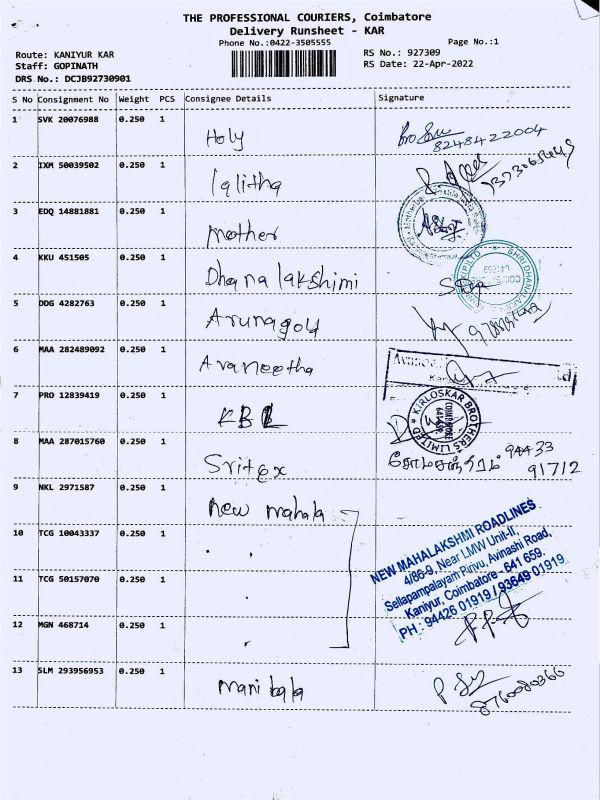 THE PROFESSIONAL COURIERS, Coimbatore
Delivery Runsheet - KAR
Phone No.:0422-3505555
Page No.:1
Route: KANIYUR KAR
RS No.: 927309
Staff: GOPINATH
RS Date: 22-Apr-2022
DRS No.: DCJB92730901
S No Consignment No Weight PCS Consignee Details Signature
1 SVK 20076988 0.250 1 Holy
8248422004
2 IXM 50039502 0.250 1 lalitha
3 EDQ 14881881 0.250 1 Mother
4 KKU 451505 0.250 1 Dhana lakshimi
5 DDG 4282763 0.250 1 Arunagold
6 MAA 282489092 0.250 1 Avaneetha
7 PRO 12839419 0.250 1 KBL
KIRLOSKAR BROTHERS LIMITED
COIMBATORE
8 MAA 287015760 0.250 1 Sritex
94433
91712
9 NKL 2971587 0.250 1 New mahala
10 TCG 10043337 0.250 1
11 TCG 50157070 0.250 1
12 MGN 468714 0.250 1
NEW MAHALAKSHMI ROADLINES
4/86-9, Near LMW Unit-II,
Sellapampalayam Pirivu, Avinashi Road,
Kaniyur, Coimbatore - 641 659.
PH : 94426 01919 / 93649 01919
13 SLM 293956953 0.250 1 Mani bala
8760080366